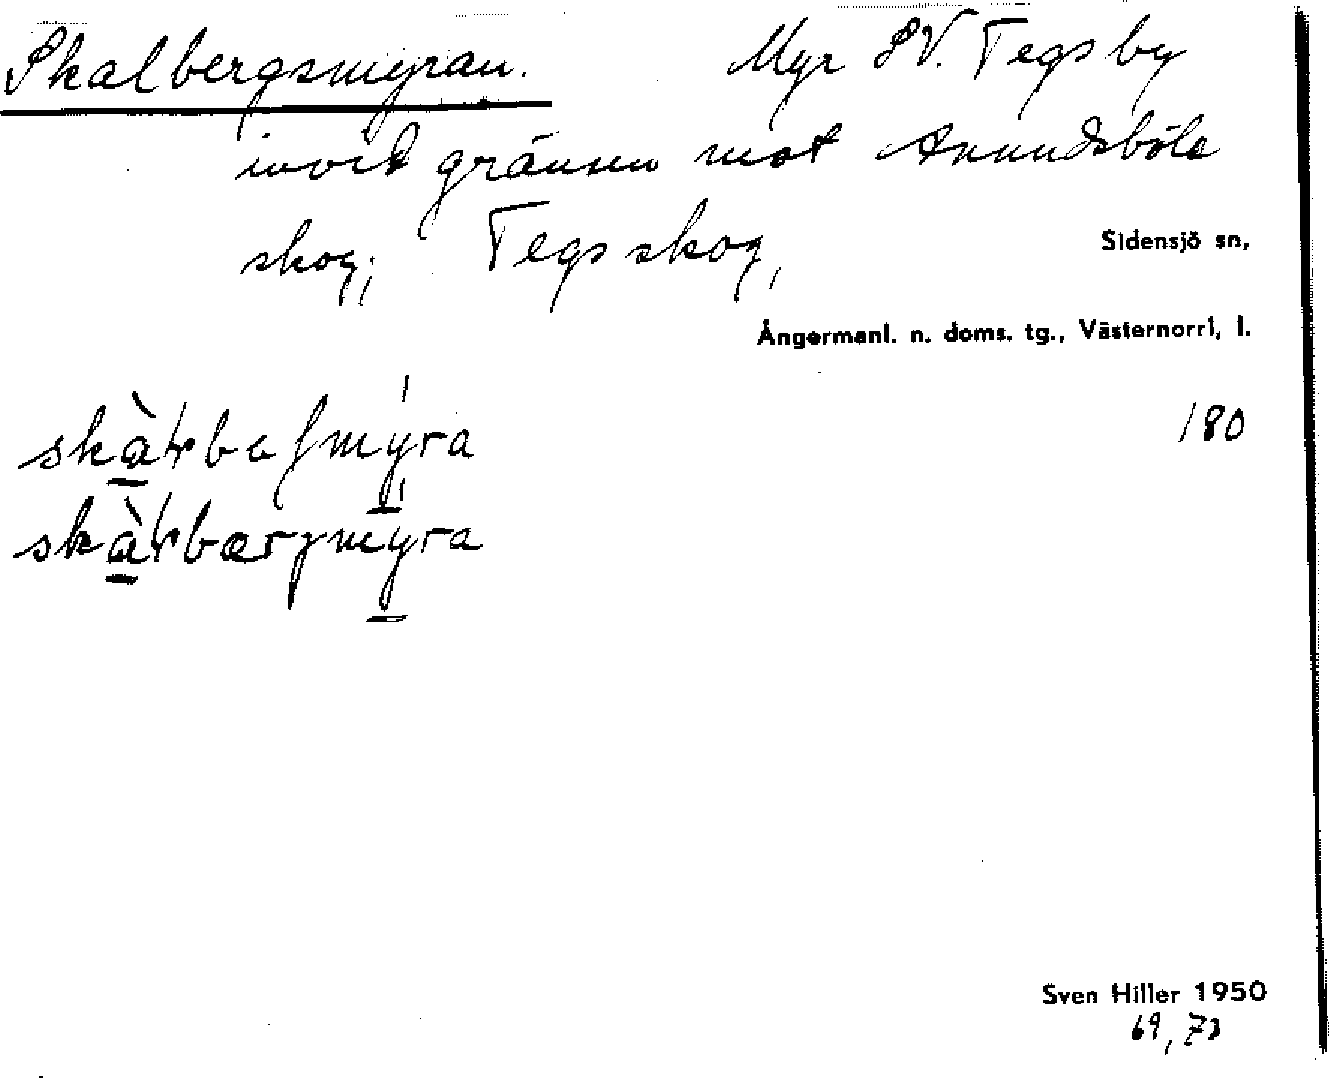 Skalbergsmyran. Myr SV. Tegsby
invid gränsen mot Anundsböle
skog; Tegs skog,
Sidensjö sn,
Ångermanl. n. doms. tg., Västernorrl. l.
180
Sven Hiller 1950
69, 73